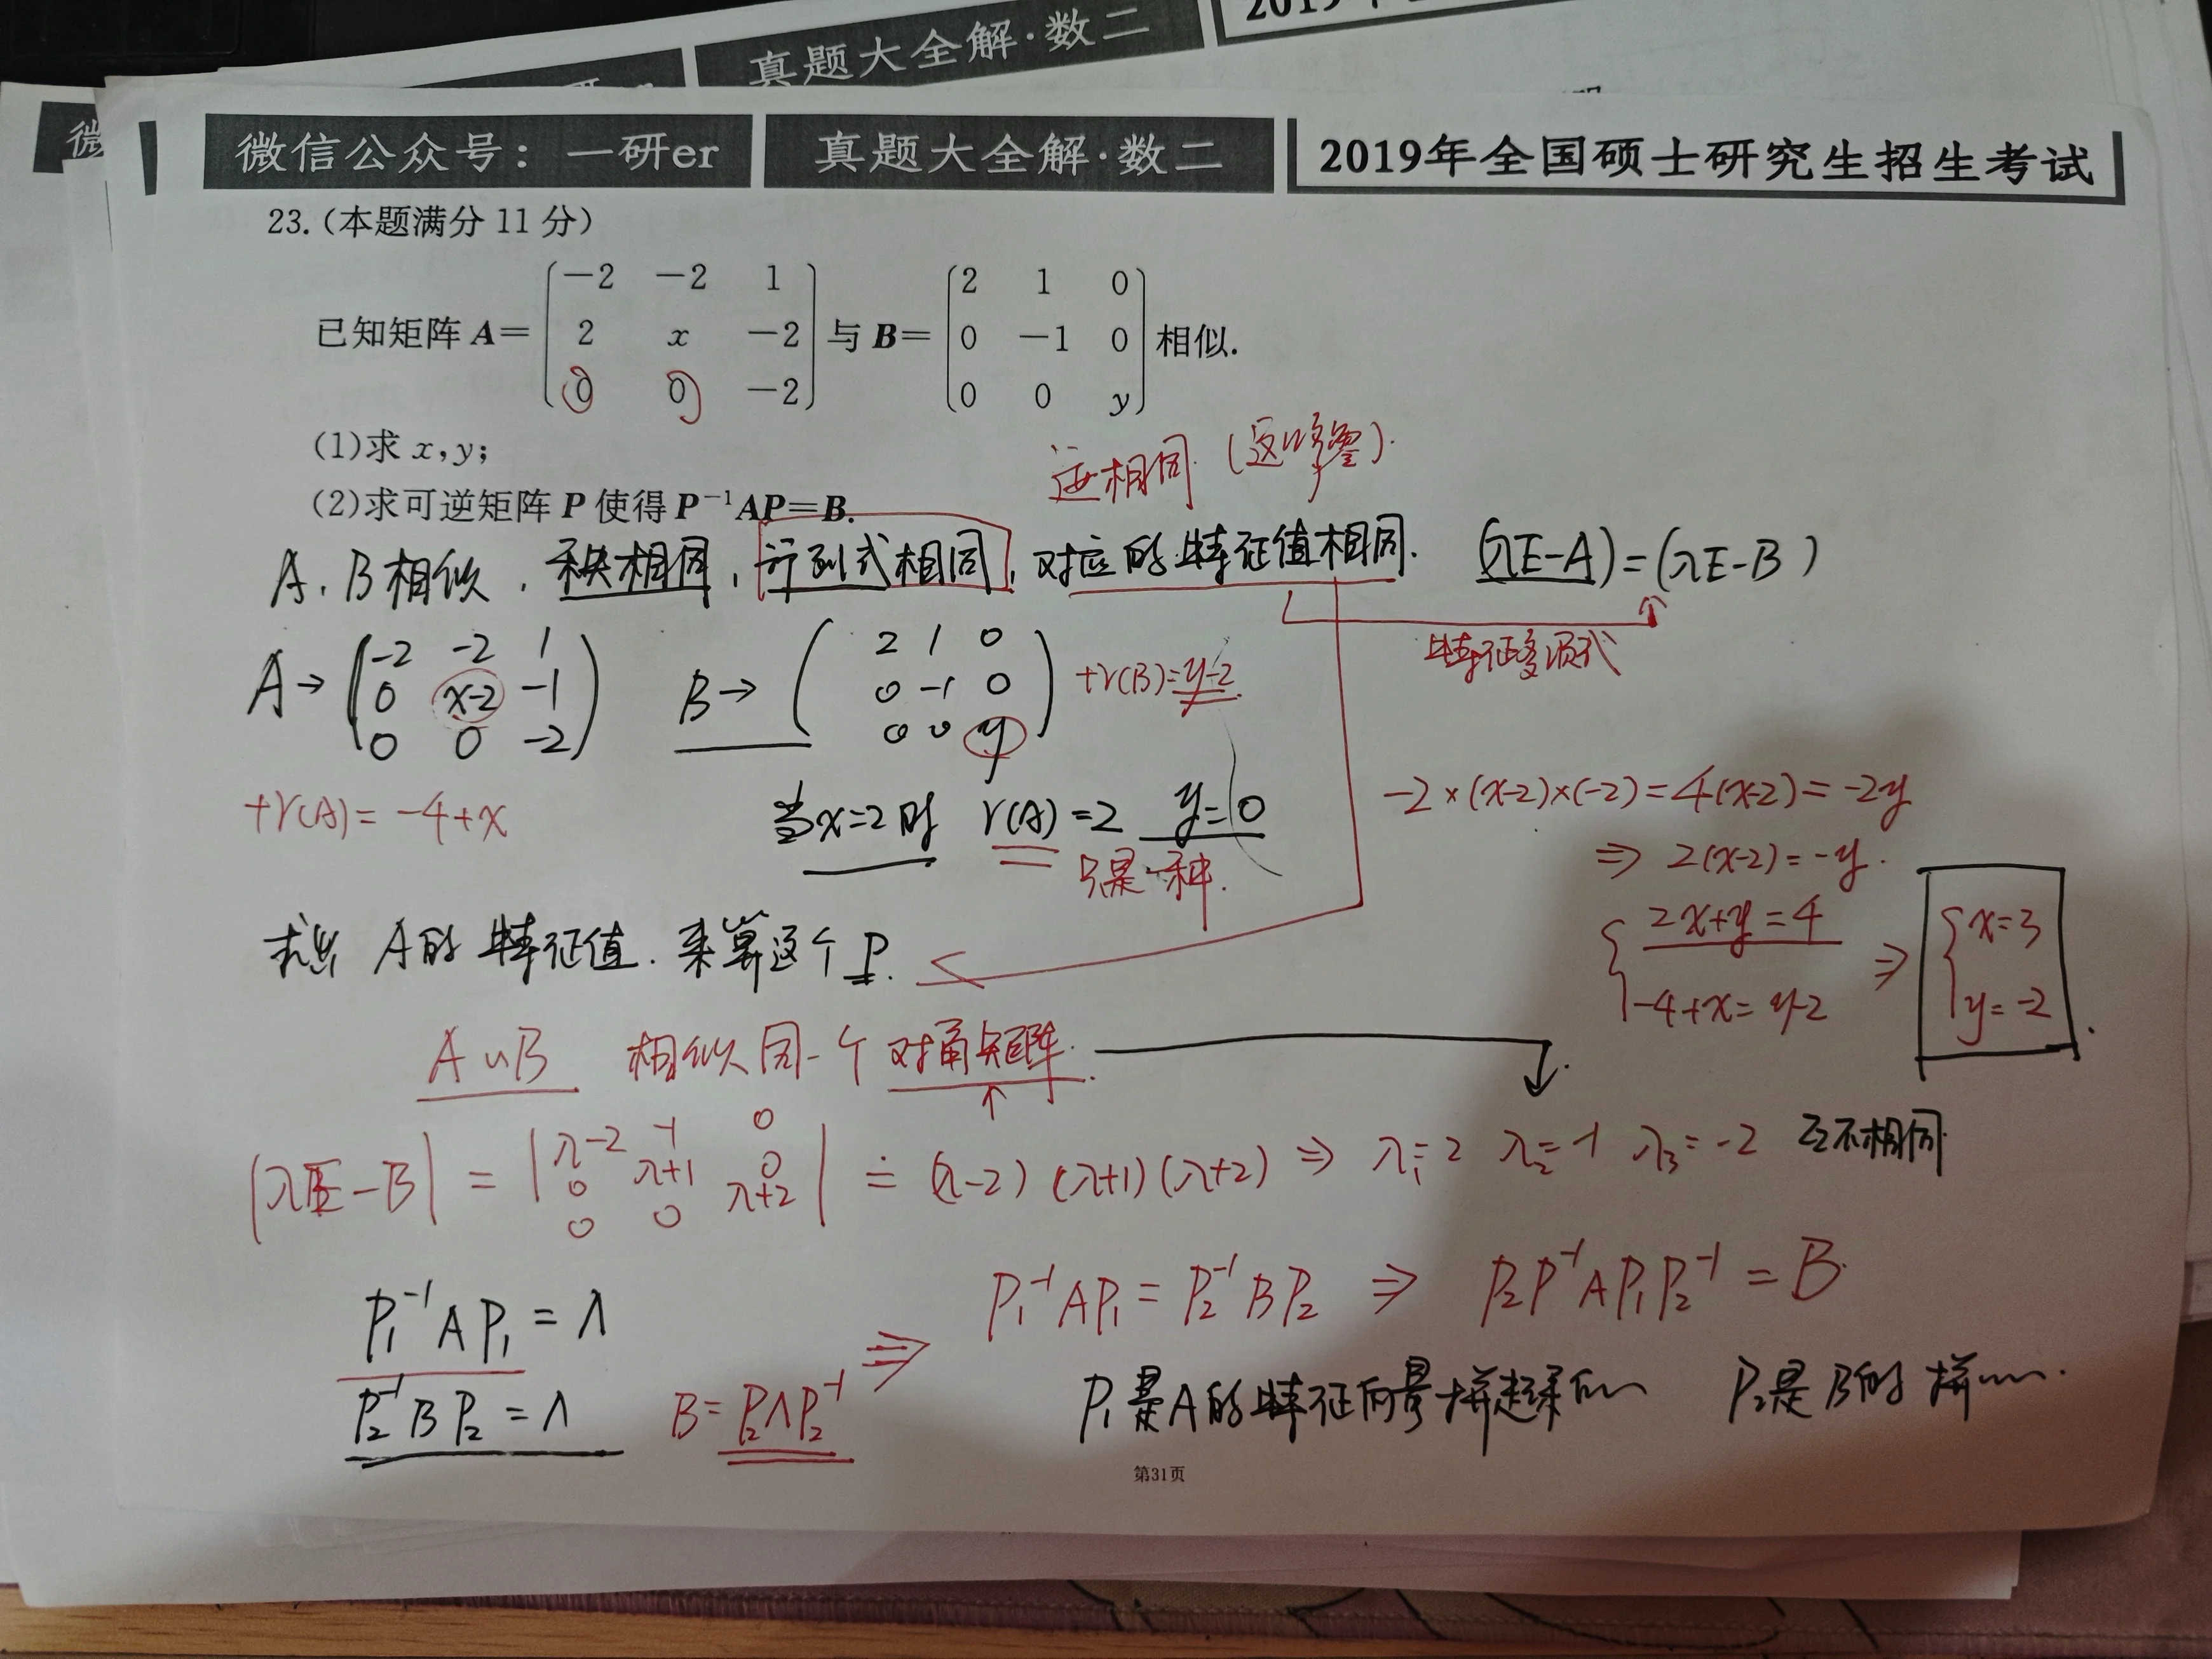 真题大全解·数二
2019年
微
微信公众号：一研er 真题大全解·数二 2019年全国硕士研究生招生考试
23.（本题满分 11 分）
已知矩阵 A= (−2 −2 1; 2 x −2; 0 0 −2) 与 B= (2 1 0; 0 −1 0; 0 0 y) 相似.
(1)求 x,y;
(2)求可逆矩阵 P 使得 P⁻¹AP=B.
迹相同
A、B相似，秩相同，行列式相同，对应的特征值相同. (λE-A)=(λE-B)
特征多项式
A→ (-2 -2 1; 0 x-2 -1; 0 0 -2) B→ (2 1 0; 0 -1 0; 0 0 y) tr(B)=y-2
tr(A)=-4+x
当x=2时 r(A)=2 y=0
只是一种.
-2×(x-2)×(-2)=4(x-2)=-2y
⇒ 2(x-2)=-y.
{2x+y=4
-4+x=y-2 ⇒ {x=3
y=-2
求出 A的特征值. 来算这个P.
A∽B 相似同一个对角矩阵.
|λE-B| = |λ-2 -1 0; 0 λ+1 0; 0 0 λ+2| = (λ-2)(λ+1)(λ+2) ⇒ λ₁=2 λ₂=-1 λ₃=-2 互不相同
P₁⁻¹AP₁=Λ
P₂⁻¹BP₂=Λ B=P₂ΛP₂⁻¹
⇒ P₁⁻¹AP₁=P₂⁻¹BP₂ ⇒ P₂P⁻¹AP₁P₂⁻¹=B
P₁是A的特征向量拼起来的 P₂是B的拼……
第31页